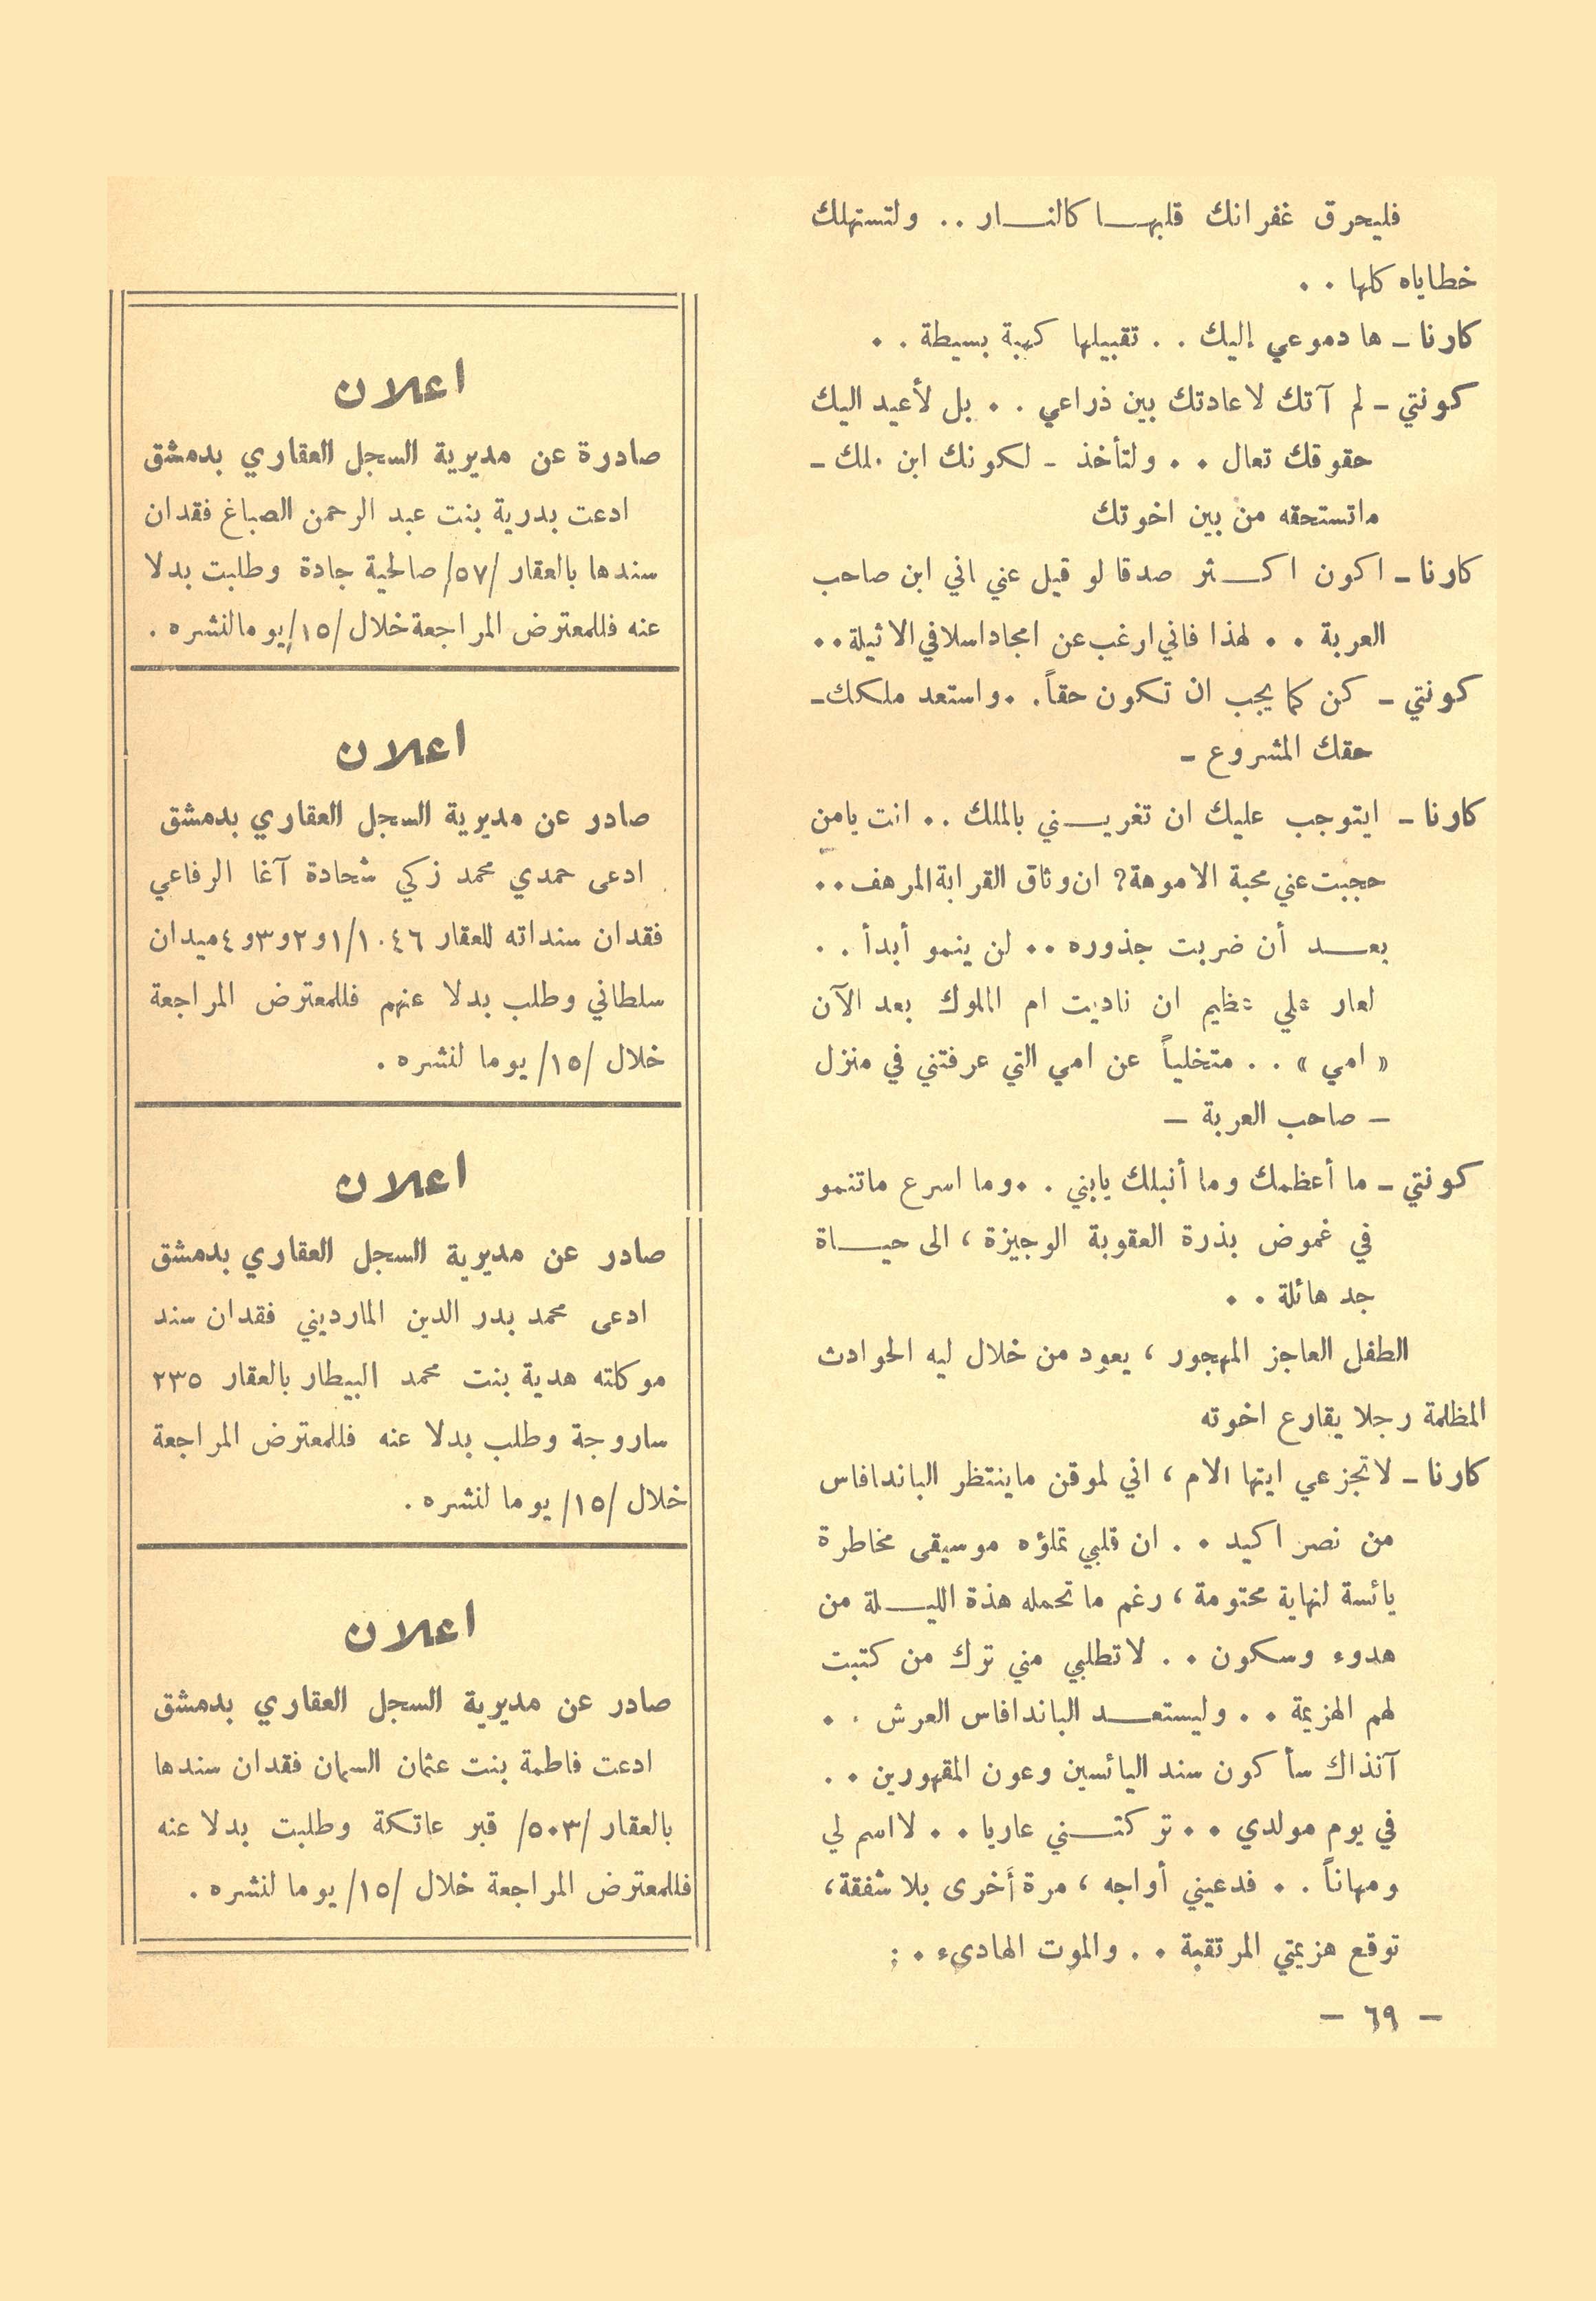 فليحرق غفرانك قلبها كالنار .. ولتستهلك
خطاياه كلها . .
كارنا ـ ها دموعي إليك . . تقبيلها كهبة بسيطة . .
كونتي ـ لم آتك لاعادتك بين ذراعي . . بل لأعيد اليك
حقوقك تعال . . ولتأخذ ـ لكونك ابن ملك ـ
ماتستحقه من بين اخوتك
كارنا ـ اكون اكثر صدقا لو قيل عني اني ابن صاحب
العربة . . لهذا فاني ارغب عن امجاد اسلافي الاثيلة ..
كونتي ـ كن كما يجب ان تكون حقاً . . واستعد ملكك ـ
حقك المشروع ـ
كارنا ـ ايتوجب عليك ان تغريني بالملك .. انت يامن
حجبت عني محبة الاموهة؟ ان وثاق القرابة المرهف ..
بعد أن ضربت جذوره .. لن ينمو أبدأ . .
لعار علي عظيم ان ناديت ام الملوك بعد الآن
« امي » . . متخلياً عن امي التي عرفتني في منزل
ـ صاحب العربة ـ
كونتي ـ ما أعظمك وما أنبلك يابني . . وما اسرع ماتنمو
في غموض بذرة العقوبة الوجيزة ، الى حياة
جد هائلة . .
الطفل العاجز المهجور ، يعود من خلال ليه الحوادث
المظلمة رجلا يقارع اخوته
كارنا ـ لاتجزعي ايتها الام ، اني لموقن ماينتظر الباندافاس
من نصر اكيد . . ان قلبي تملؤه موسيقى مخاطرة
يائسة لنهاية محتومة ، رغم ماتحمله هذة الليلة من
هدوء وسكون . . لاتطلبي مني ترك من كتبت
لهم الهزيمة . . وليستعد الباندافاس العرش . .
آنذاك سأكون سند اليائسين وعون المقهورين . .
في يوم مولدي . . تركتني عاريا . . لااسم لي
ومهاناً . . فدعيني أواجه ، مرة أخرى بلا شفقة ،
توقع هزيمتي المرتقبة . . والموت الهادىء . :
ـ ٦٩ ـ
اعلان
صادرة عن مديرية السجل العقاري بدمشق
ادعت بدرية بنت عبد الرحمن الصباغ فقدان
سندها بالعقار /٥٧/ صالحية جادة وطلبت بدلا
عنه فللمعترض المراجعة خلال /١٥/ يوما لنشره .
اعلان
صادر عن مديرية السجل العقاري بدمشق
ادعى حمدي محمد زكي شحادة آغا الرفاعي
فقدان سنداته للعقار ١/١٠٤٦و٢و٣و٤ميدان
سلطاني وطلب بدلا عنهم فللمعترض المراجعة
خلال /١٥/ يوما لنشره .
اعلان
صادر عن مديرية السجل العقاري بدمشق
ادعى محمد بدر الدين المارديني فقدان سند
موكلته هدية بنت محمد البيطار بالعقار ٢٣٥
ساروجة وطلب بدلا عنه فللمعترض المراجعة
خلال /١٥/ يوما لنشره .
اعلان
صادر عن مديرية السجل العقاري بدمشق
ادعت فاطمة بنت عثمان السمان فقدان سندها
بالعقار /٥٠٣/ قبر عاتكة وطلبت بدلا عنه
فللمعترض المراجعة خلال /١٥/ يوما لنشره .